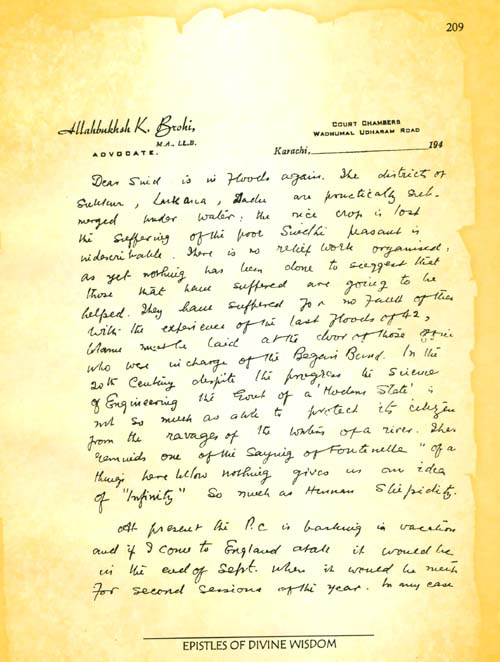 209
Allahbukhsh K. Brohi,
M.A., LL.B.
ADVOCATE.
COURT CHAMBERS
WADHUMAL UDHARAM ROAD
Karachi, 194
Dear Sind is in floods again. The districts of
Sukkur, Larkana, Dadu are practically sub-
merged under water: the rice crop is lost
the suffering of the poor Sindhi peasant is
indescribable. There is no relief work organised;
as yet nothing has been done to suggest that
those that have suffered are going to be
helped. They have suffered for no fault of theirs
With the experience of the last floods of 42,
blame must be laid at the door of those
who were in charge of the Begari Bund. In the
20th Century despite the progress the science
of Engineering the Govt of a Modern State is
not so much as able to protect its citizen
from the ravages of the waters of a river. This
reminds one of the saying of Fontenelle "of a
things here below nothing gives us an idea
of "Infinity" So much as Human Stupidity.
At present the P.C is basking in vacation
and if I come to England atall it would be
in the end of Sept. when it would be
for second sessions of the year. In any case
EPISTLES OF DIVINE WISDOM